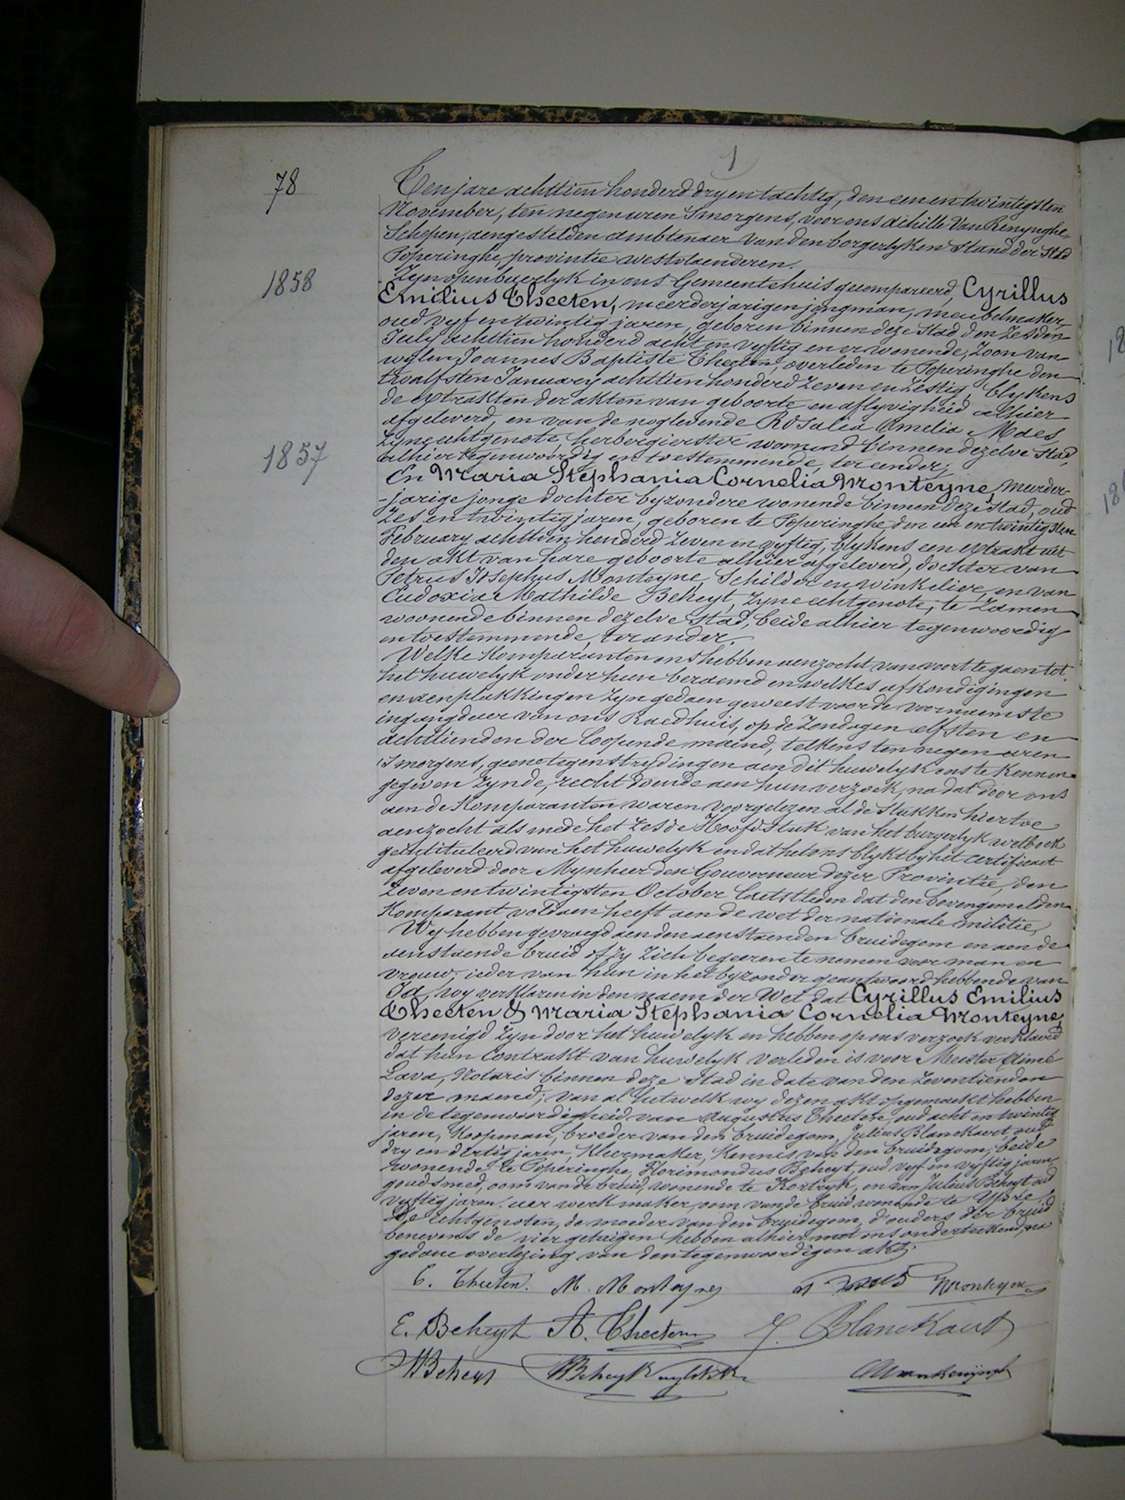 1
78
Ten jare achttien honderd dry en tachtig, den een en twintigsten
November, ten negen uren 's morgens, voor ons Achille Van Renynghe
Schepen, aengestelden ambtenaer van den borgerlyken stand der Stad
Poperinghe provintie westvlaenderen.
1858
Zyn openbaerlyk in ons Gemeentehuis gecompareerd, Cyrillus
Emilius Theeten, meerderjarigen jongman, meubelmaker
oud vyf en twintig jaren, geboren binnen deze Stad den zesden
July achttien honderd acht en vyftig en er wonende, Zoon van
wylen Joannes Baptiste Theeten, overleden te Poperinghe den
twaalfsten January achttien honderd zeven en zestig, blykens
de extrakten der akten van geboorte en aflyvigheid alhier
afgeleverd, en van de noglevende Rosalia Amelia Maes
zyne echtgenote, herbergierster wonend binnen dezelve stad,
alhier tegenwoordig en toestemmende, ter eender;
1857
En Maria Stephania Cornelia Monteyne, meerder-
-jarige jonge dochter byzondere wonende binnen deze stad, oud
zes en twintig jaren, geboren te Poperinghe den een en twintigsten
February achttien honderd zeven en vyftig, blykens een extrakt uit
den akt van hare geboorte alhier afgeleverd, dochter van
Petrus Josephus Monteyne, Schilder en winkelier, en van
Eudoxia Mathilde Beheyt, zyne echtgenote, te zamen
woonende binnen dezelve stad, beide alhier tegenwoordig
en toestemmende, ter ander.
Welke Komparanten ons hebben verzocht van voort te gaen tot
het huwelyk onder hun beraemd en welkes afkondigingen
en aenplakkingen zyn gedaen geweest voor de voornaemste
ingangdeur van ons Raedhuis, op de zondagen elfsten en
achttienden der loopende maend, telkens ten negen uren
's morgens, geene tegenstrydingen aen dit huwelyk ons te kennen
gegeven zynde, recht doende aen hun verzoek, na dat door ons
aen de Komparanten waren voorgelezen al de Stukken hiertoe
verzocht als mede het zesde Hoofdstuk van het burgerlyk wetboek
geintituleerd van het huwelyk en dat het ons blykt by het certificaet
afgeleverd door Mynheer den Gouverneur dezer Provintie, den
zeven en twintigsten October laetstleden dat den bovengemelden
Komparant voldaen heeft aen de wet der nationale militie,
Wy hebben gevraegd aen den aenstaenden bruidegom en aen de
aenstaende bruid of zy zich begeeren te nemen voor man en
vrouw; ieder van hun in het byzonder geantwoord hebbende van
Ja, wy verklaren in den naem der Wet dat Cyrillus Emilius
Theeten & Maria Stephania Cornelia Monteyne,
vereenigd zyn door het huwelyk en hebben op ons verzoek verklaerd
dat hun contrakt van huwelyk verleden is voor Meester Aimé
Lava, Notaris binnen deze Stad in date van den zeventienden
dezer maend; van al hetwelk wy dezen akt opgemaekt hebben
in de tegenwoordigheid van Augustus Theeten, oud acht en twintig
jaren, Koopman, broeder van den bruidegom, Julius Blanckaert, oud
dry en dertig jaren, Kleermaker, Kennis van den bruidegom; beide
wonende te Poperinghe, Florimondus Beheyt, oud vyf en vyftig jaren
goudsmed, oom van de bruid, wonende te Kortryk, en van Julius Beheyt oud
vyftig jaren uerwerkmaker, oom van de bruid wonende te Ypre.
De Echtgenoten, de moeder van den bruidegom, d'ouders der bruid
benevens de vier getuigen hebben alhier met ons onderteekend, na
gedane overlezing van den tegenwoordigen akt.
C. Theeten. M. Monteyne Maes Monteyne
E. Beheyt A. Theeten J. Blanckaert
Beheyt Beheyt